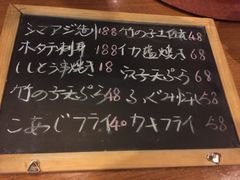 シマアジ造り 188 竹の子土佐煮 68
ホタテ刺身 188 イカ塩焼き 68
ししとう串焼き 18 穴子天ぷら 68
竹の子天ぷら 48 ふぐみりん 58
こあじフライ 40 カキフライ 58